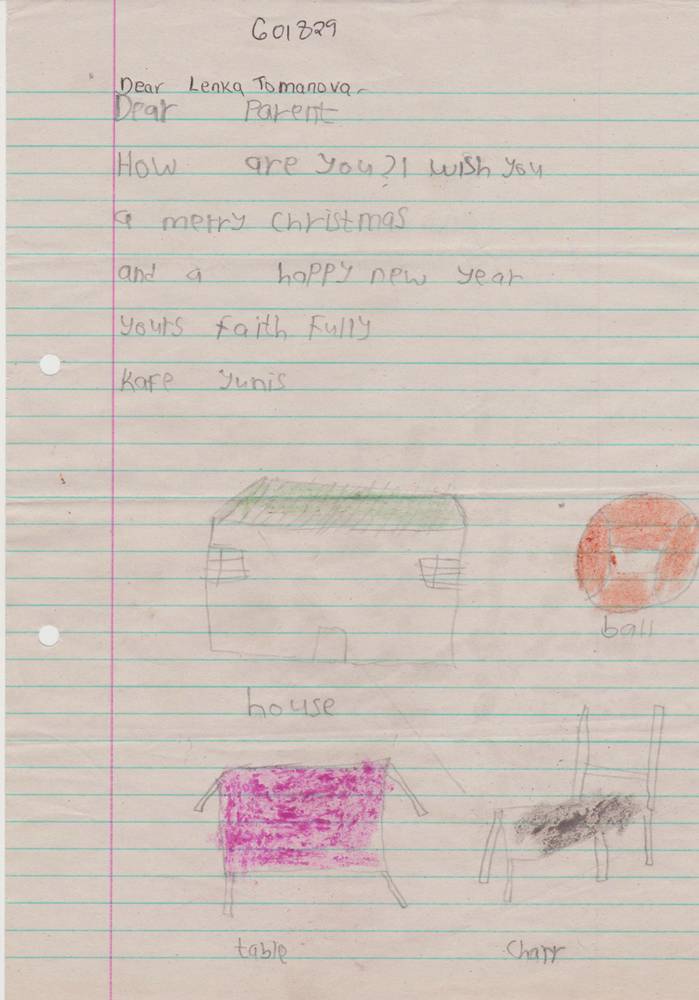 601829
Dear Lenka Tomanova
Dear Parent
How are you? I wish you
a merry Christmas
and a happy new year
yours faith fully
Kare Yunis
ball
house
table
Chair